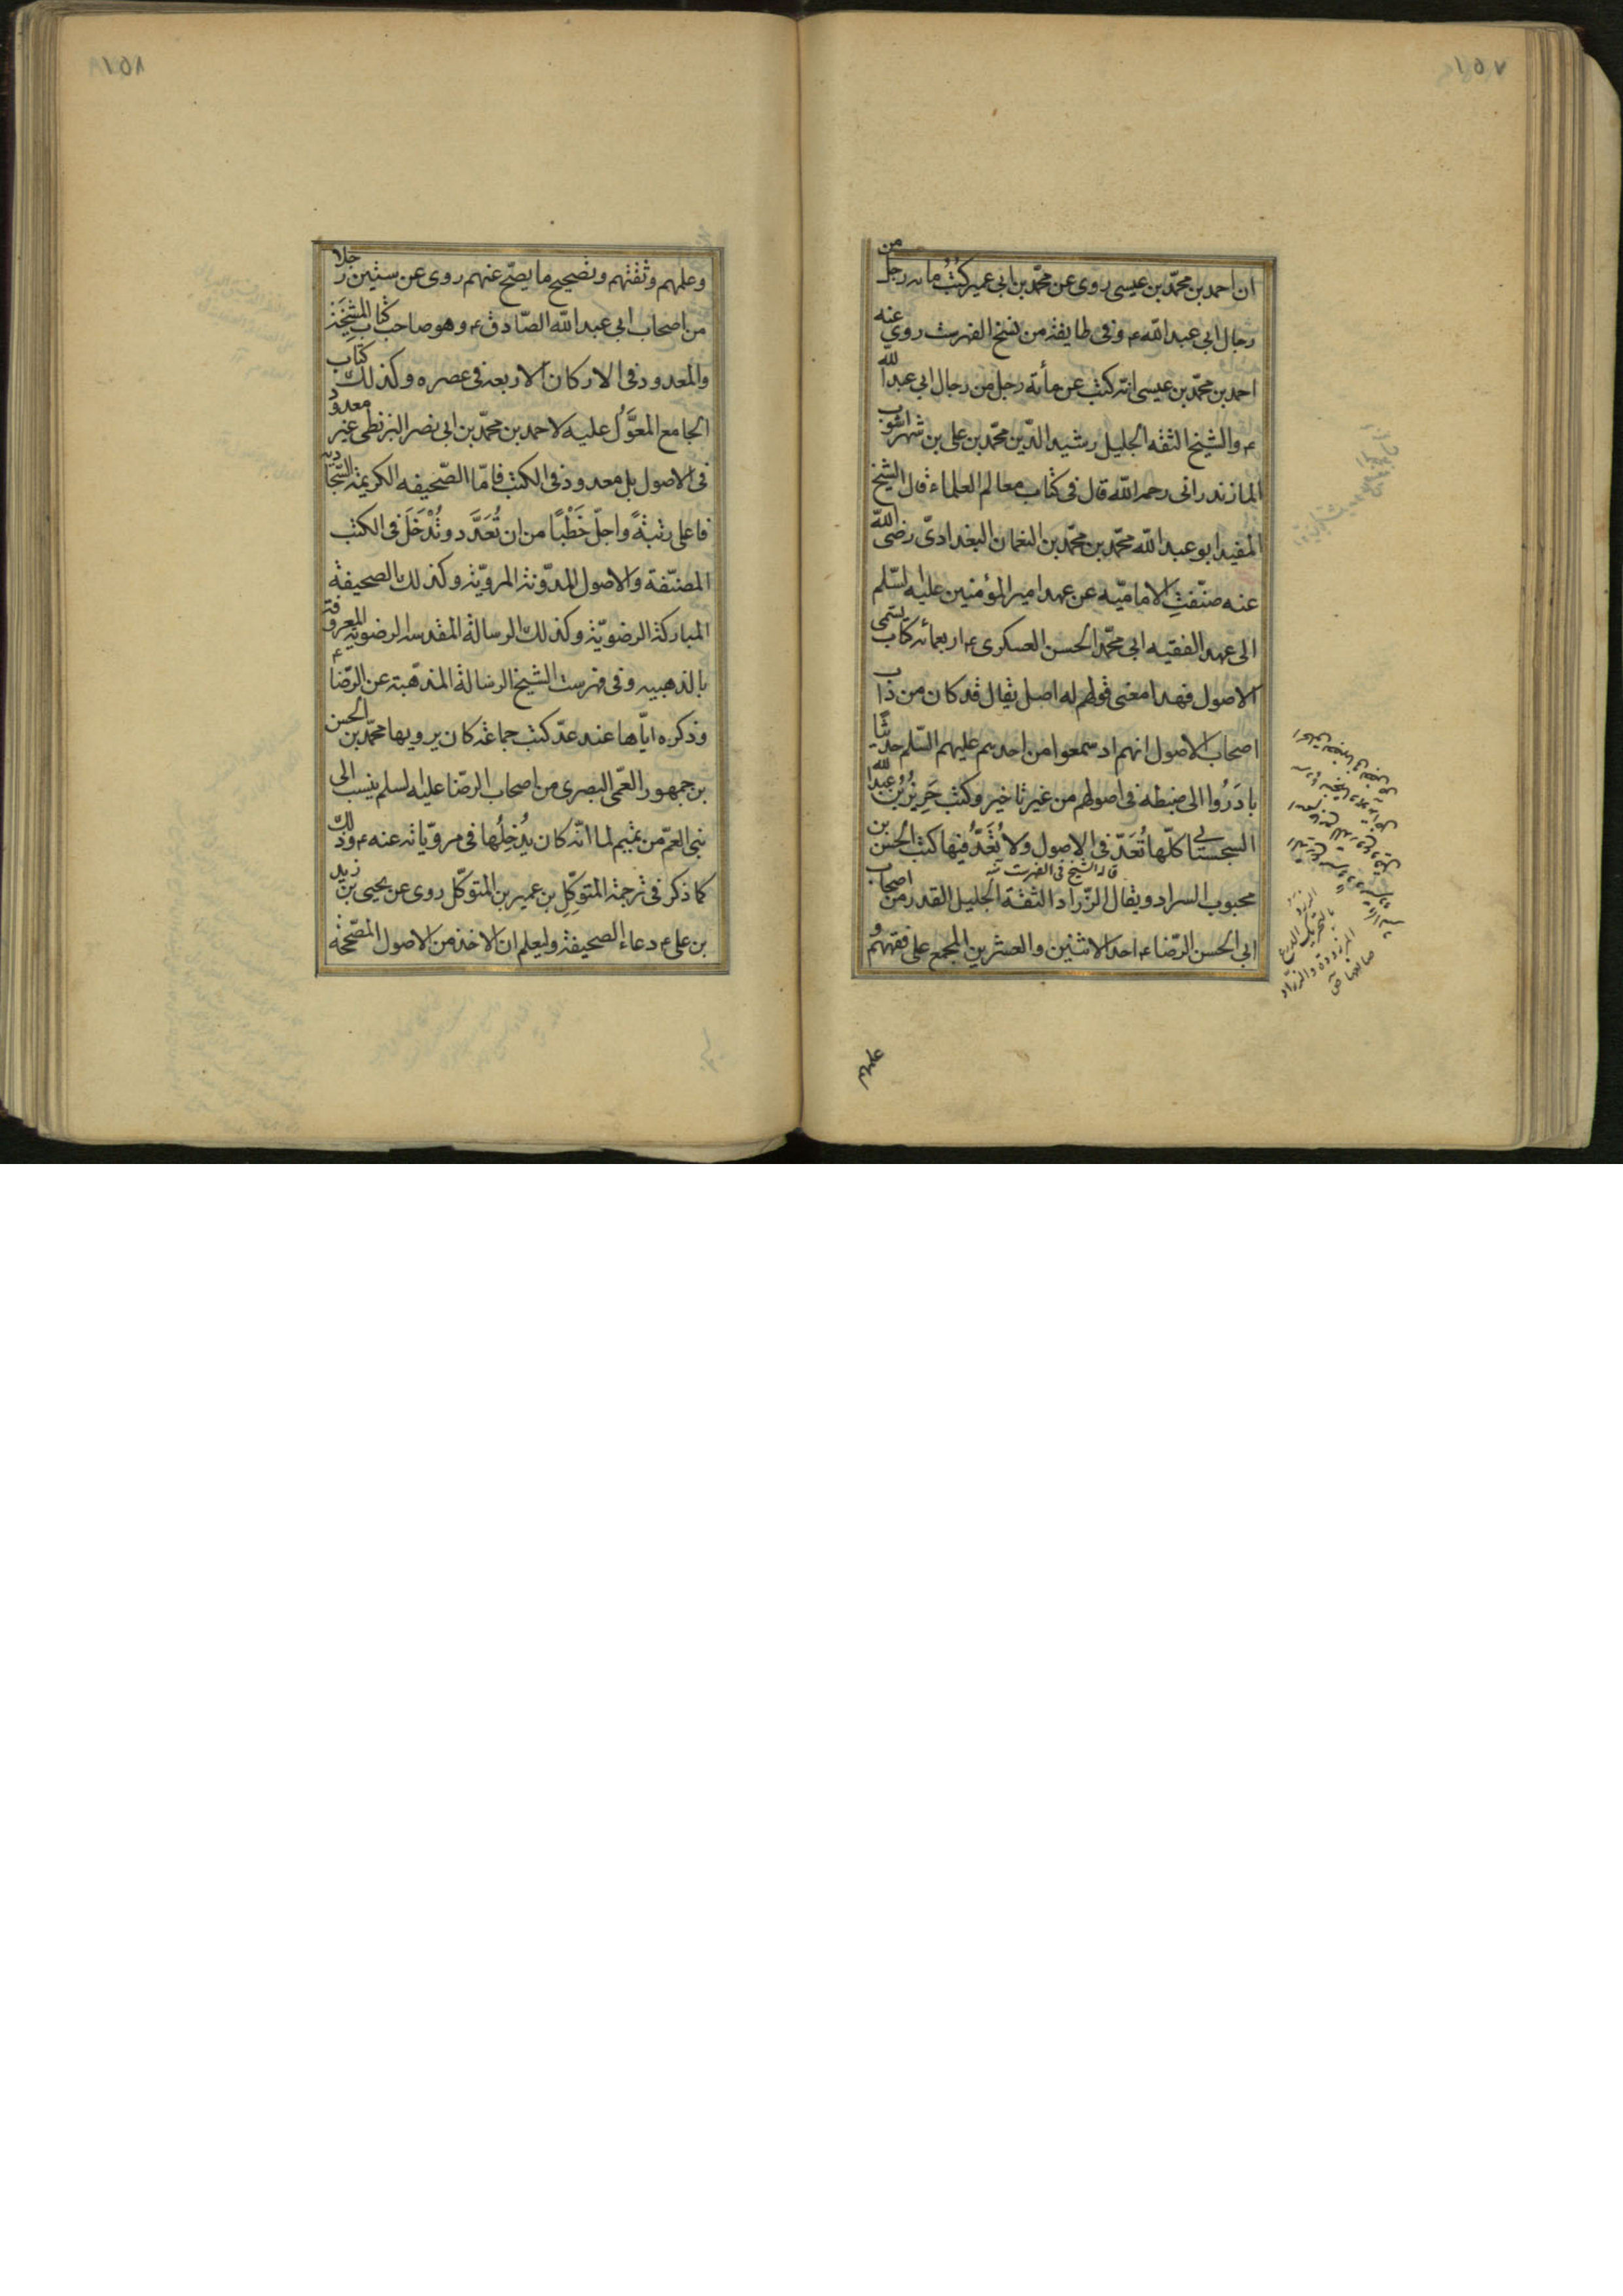 ١٥٧
ان احمد بن محمّد بن عيسى روى عن محمّد بن ابى عمير كُتُبُ مائه رجل من
رجال ابى عبد الله ء وفى طايفة من نسخ الفهرست روى عنه
احمد بن محمّد بن عيسى انّه كتب عن مأئة رجل من رجال ابى عبد الله
ء والشيخ الثقه الجليل رشيد الدّين محمّد بن على بن شهر اشوب
المازندرانى رحمه الله قال فى كتاب معالم العلماء قال الشيخ
المفيد ابو عبد الله محمّد بن محمّد بن النعمان البغدادىّ رضى الله
عنه صنّفتِ الاماميّه عن عهد امير المؤمنين عليه السّلم
الى عهد الفقيه ابى محمّد الحسن العسكرى ء اربعمائه كتاب يسمى
الاصول فهذا معنى قولهم له اصل يقال قد كان من داب
اصحاب الاصول انهم اذ سمعوا من احدهم عليهم السّلم حديثًا
بادَرُوا الى ضبطه فى اصولهم من غير تاخير وكتب حَرِيزُ بن عبد الله
السجستانى كلّها تُعَدّ فى الاصول ولا يُعَدُّ فيها كتب الحسن بن
قاله الشيخ فى الفهرست
محبوب السراد ويقال الزّراد الثقة الجليل القدر من اصحاب
ابى الحسن الرّضاء احد الاثنين والعشرين المجمع على فقههم و
الزرد
بالتحريك الدرع
المزرودة والزرّاد
صانعها
علمهم
١٥٨
وعلمهم وثقتهم وتصحيح ما يصحّ عنهم روى عن ستين رجلا
من اصحاب ابى عبد الله الصّادق ء وهو صاحب كتاب المشيخة
والمعدود فى الاركان الاربعه فى عصره وكذلك كتاب
الجامع المعوَّل عليه لاحمد بن محمّد بن ابى نصر البزنطى غير معدود
فى الاصول بل معدود فى الكتب فامّا الصّحيفه الكريمة السّجّاديّه
فاعلى رتبةً واجلّ خَطْبًا من ان تُعَدَّ وتُدْخَلَ فى الكتب
المصنّفة والاصول المدّونة المرويّة وكذلك الصحيفة
المباركة الرضويّة وكذلك الرسالة المقدسه الرضويّه المعروفة
بالذهبيه وفى فهرست الشيخ الرسالة المذهّبة عن الرّضا ء
وذكره ايّاها عند عدّ كتب جماعة كان يرويها محمّد بن الحسن
بن جمهور العّمى البصرى من اصحاب الرضّا عليه السلم ينسب الى
بنى العمّ من تميم لما انّه كان يُدْخِلُها فى مرويّاته عنه ء وذلك
كما ذكر فى ترجمة المتوكّلِ بن عمير بن المتوكّل روى عن يحيى بن زيد
بن على ء دعاء الصحيفة وليعلم ان الاخذ من الاصول المصّححة